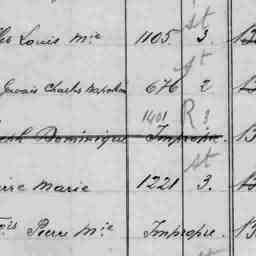 Louis Mie 1105 st 3.
Gervais Charles Napoléon 676 st 2
1401 R 3
Dominique Impropre.
Marie 1221 st 3.
Pierre Mie Impropre.